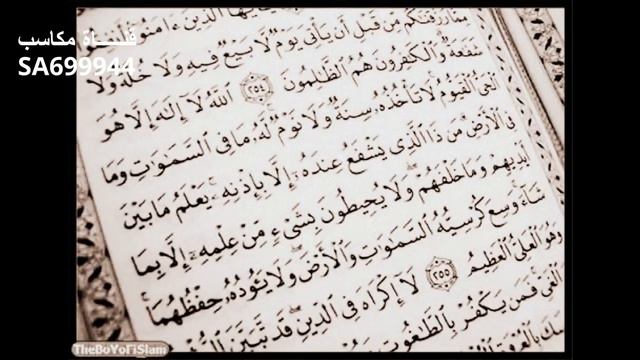 قناة مكاسب
SA699944
ءامنوا
مما رزقنكم من قبل أن يأتي يوم لا بيع فيه ولا خلة ولا
شفعة والكفرون هم الظلمون ٢٥٤ الله لا إله إلا هو
الحي القيوم لا تأخذه سنة ولا نوم له ما في السموت وما
في الأرض من ذا الذي يشفع عنده إلا بإذنه يعلم ما بين
أيديهم وما خلفهم ولا يحيطون بشيء من علمه إلا بما
شاء وسع كرسيه السموت والأرض ولا يئوده حفظهما
وهو العلي العظيم ٢٥٥ لا إكراه في الدين قد تبين
الغي فمن يكفر بالطغوت
TheBoYofiSlam